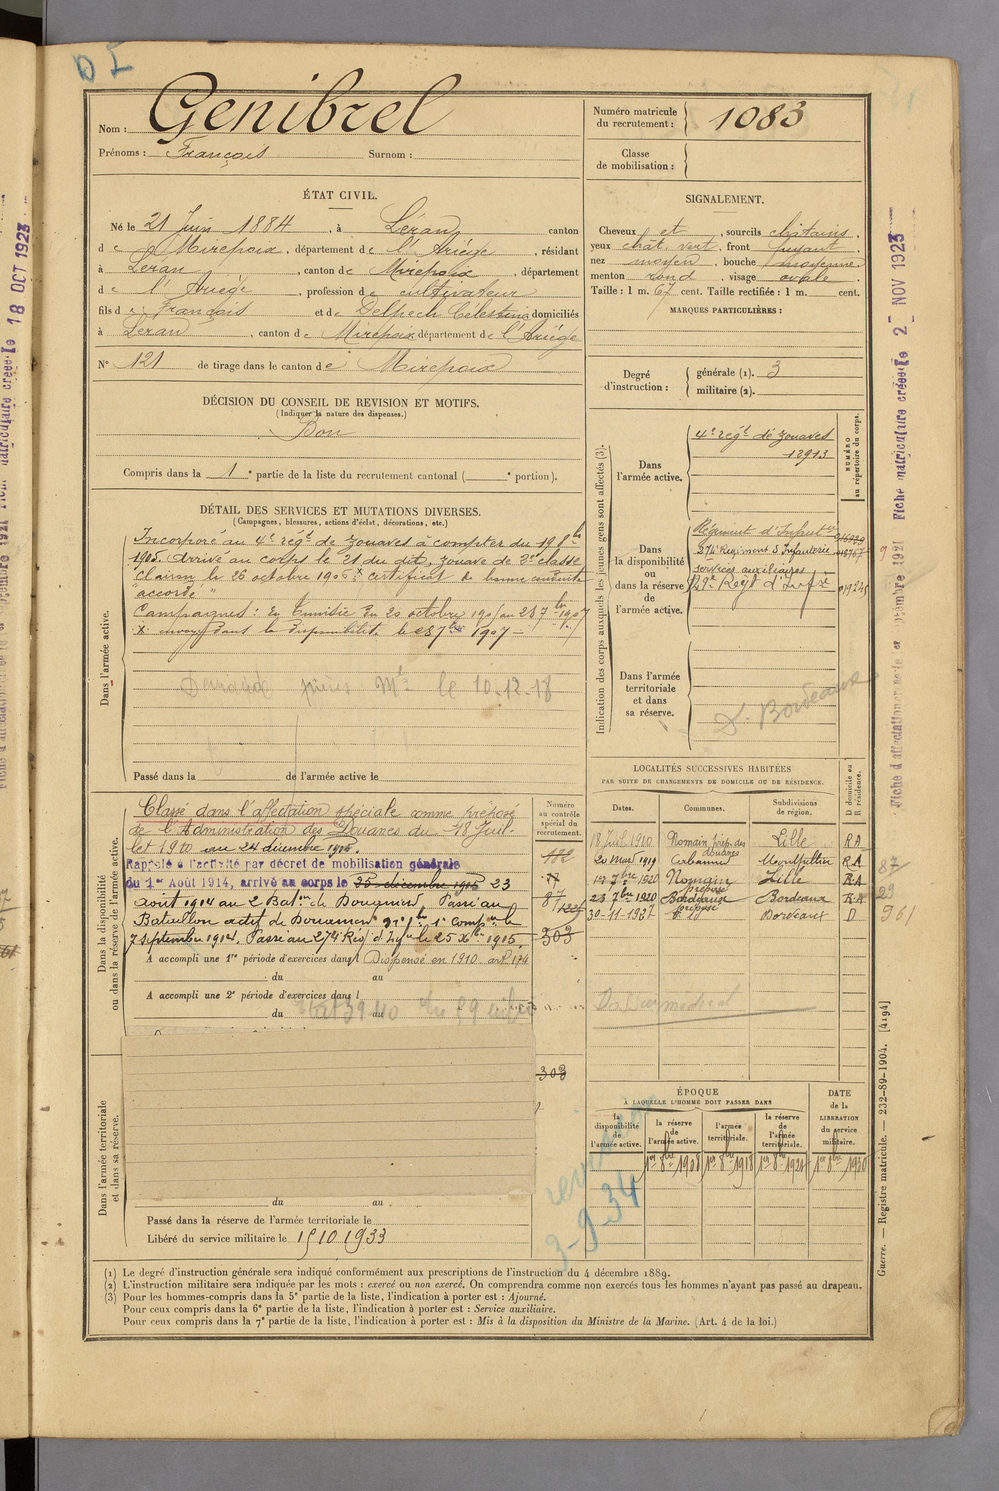 D I
Nom : Genibrel
Prénoms : François Surnom :
Numéro matricule du recrutement : 1083
Classe de mobilisation :
ÉTAT CIVIL.
Né le 21 Juin 1884, à Léran canton
de Mirepoix, département de l'Ariège, résidant
à Léran, canton de Mirepoix, département
de l'Ariège, profession de cultivateur
fils de François et de Delpech Célestine domiciliés
à Léran, canton de Mirepoix, département de l'Ariège
N° 121 de tirage dans le canton de Mirepoix
SIGNALEMENT.
Cheveux et, sourcils châtains,
yeux chât. vert, front fuyant,
nez moyen, bouche moyenne
menton rond visage ovale.
Taille : 1 m. 67 cent. Taille rectifiée : 1 m. cent.
MARQUES PARTICULIÈRES :
Degré d'instruction : générale (1). 3
militaire (2).
DÉCISION DU CONSEIL DE REVISION ET MOTIFS.
(Indiquer la nature des dispenses.)
Bon
Compris dans la 1e partie de la liste du recrutement cantonal ( e portion).
DÉTAIL DES SERVICES ET MUTATIONS DIVERSES.
(Campagnes, blessures, actions d'éclat, décorations, etc.)
Dans l'armée active.
Incorporé au 4e régt de zouaves à compter du 19 8bre
1905. Arrivé au corps le 21 du dit, zouave de 2e classe
Clairon le 26 octobre 1906 x certificat de bonne conduite
accordé "
Campagnes : En Tunisie du 20 octobre 1905 au 23 7bre 1907
x envoyé dans la disponibilité le 23 7bre 1907
Demande pièces Mle le 10-12-18
Passé dans la de l'armée active le
Indication des corps auxquels les jeunes gens sont affectés (3).
NUMÉRO au répertoire du corps.
Dans l'armée active.
4e régt de zouaves
12913
Dans la disponibilité ou dans la réserve de l'armée active.
Régiment d'Infanterie
274e Régiment d'Infanterie
services auxiliaires
Dans l'armée territoriale et dans sa réserve.
D. Bordeaux
Dans la disponibilité ou dans la réserve de l'armée active.
Classé dans l'affectation spéciale comme préposé
de l'Administration des Douanes du 18 Juil-
let 1910 au 24 décembre 1915.
Rappelé à l'activité par décret de mobilisation générale
du 1er Août 1914, arrivé au corps le 25 décembre 1915 23
août 1914 au 2 Baton de Douaniers Passé au
Bataillon actif de Douaniers
7 septembre 1914, Passé au 274e Rég d'Infie le 25 Xbre 1915,
A accompli une 1re période d'exercices dans l Dispensé en 1910. art. 194
du au
A accompli une 2e période d'exercices dans l
du au
Numéro au contrôle spécial du recrutement.
182
77
87
303
303
LOCALITÉS SUCCESSIVES HABITÉES
PAR SUITE DE CHANGEMENTS DE DOMICILE OU DE RÉSIDENCE.
Dates. Communes. Subdivisions de région. D domicile ou R résidence.
18 Juil. 1910 Nomain prép. des douanes Lille RA
20 Mars 1919 Montpellier RA
7bre 1920 Nomain préposé Lille RA
23 7bre 1920 Bordeaux préposé Bordeaux RA
30-11-1927 Bordeaux D
87
23
961
médical
Dans l'armée territoriale et dans sa réserve.
du au
Passé dans la réserve de l'armée territoriale le
Libéré du service militaire le 15 10 1933
ÉPOQUE
À LAQUELLE L'HOMME DOIT PASSER DANS
la disponibilité de l'armée active.
la réserve de l'armée active. 1er 8bre 1908
l'armée territoriale. 1er 8bre 1918
la réserve de l'armée territoriale. 1er 8bre 1924
DATE de la LIBÉRATION du service militaire. 1er 8bre 1930
3-9-34
(1) Le degré d'instruction générale sera indiqué conformément aux prescriptions de l'instruction du 4 décembre 1889.
(2) L'instruction militaire sera indiquée par les mots : exercé ou non exercé. On comprendra comme non exercés tous les hommes n'ayant pas passé au drapeau.
(3) Pour les hommes compris dans la 5e partie de la liste, l'indication à porter est : Ajourné.
Pour ceux compris dans la 6e partie de la liste, l'indication à porter est : Service auxiliaire.
Pour ceux compris dans la 7e partie de la liste, l'indication à porter est : Mis à la disposition du Ministre de la Marine. (Art. 4 de la loi.)
Guerre. — Registre matricule. — 232-89-1904. [4194]
Fiche matriculaire créée le 2 NOV 1923
18 OCT 1923